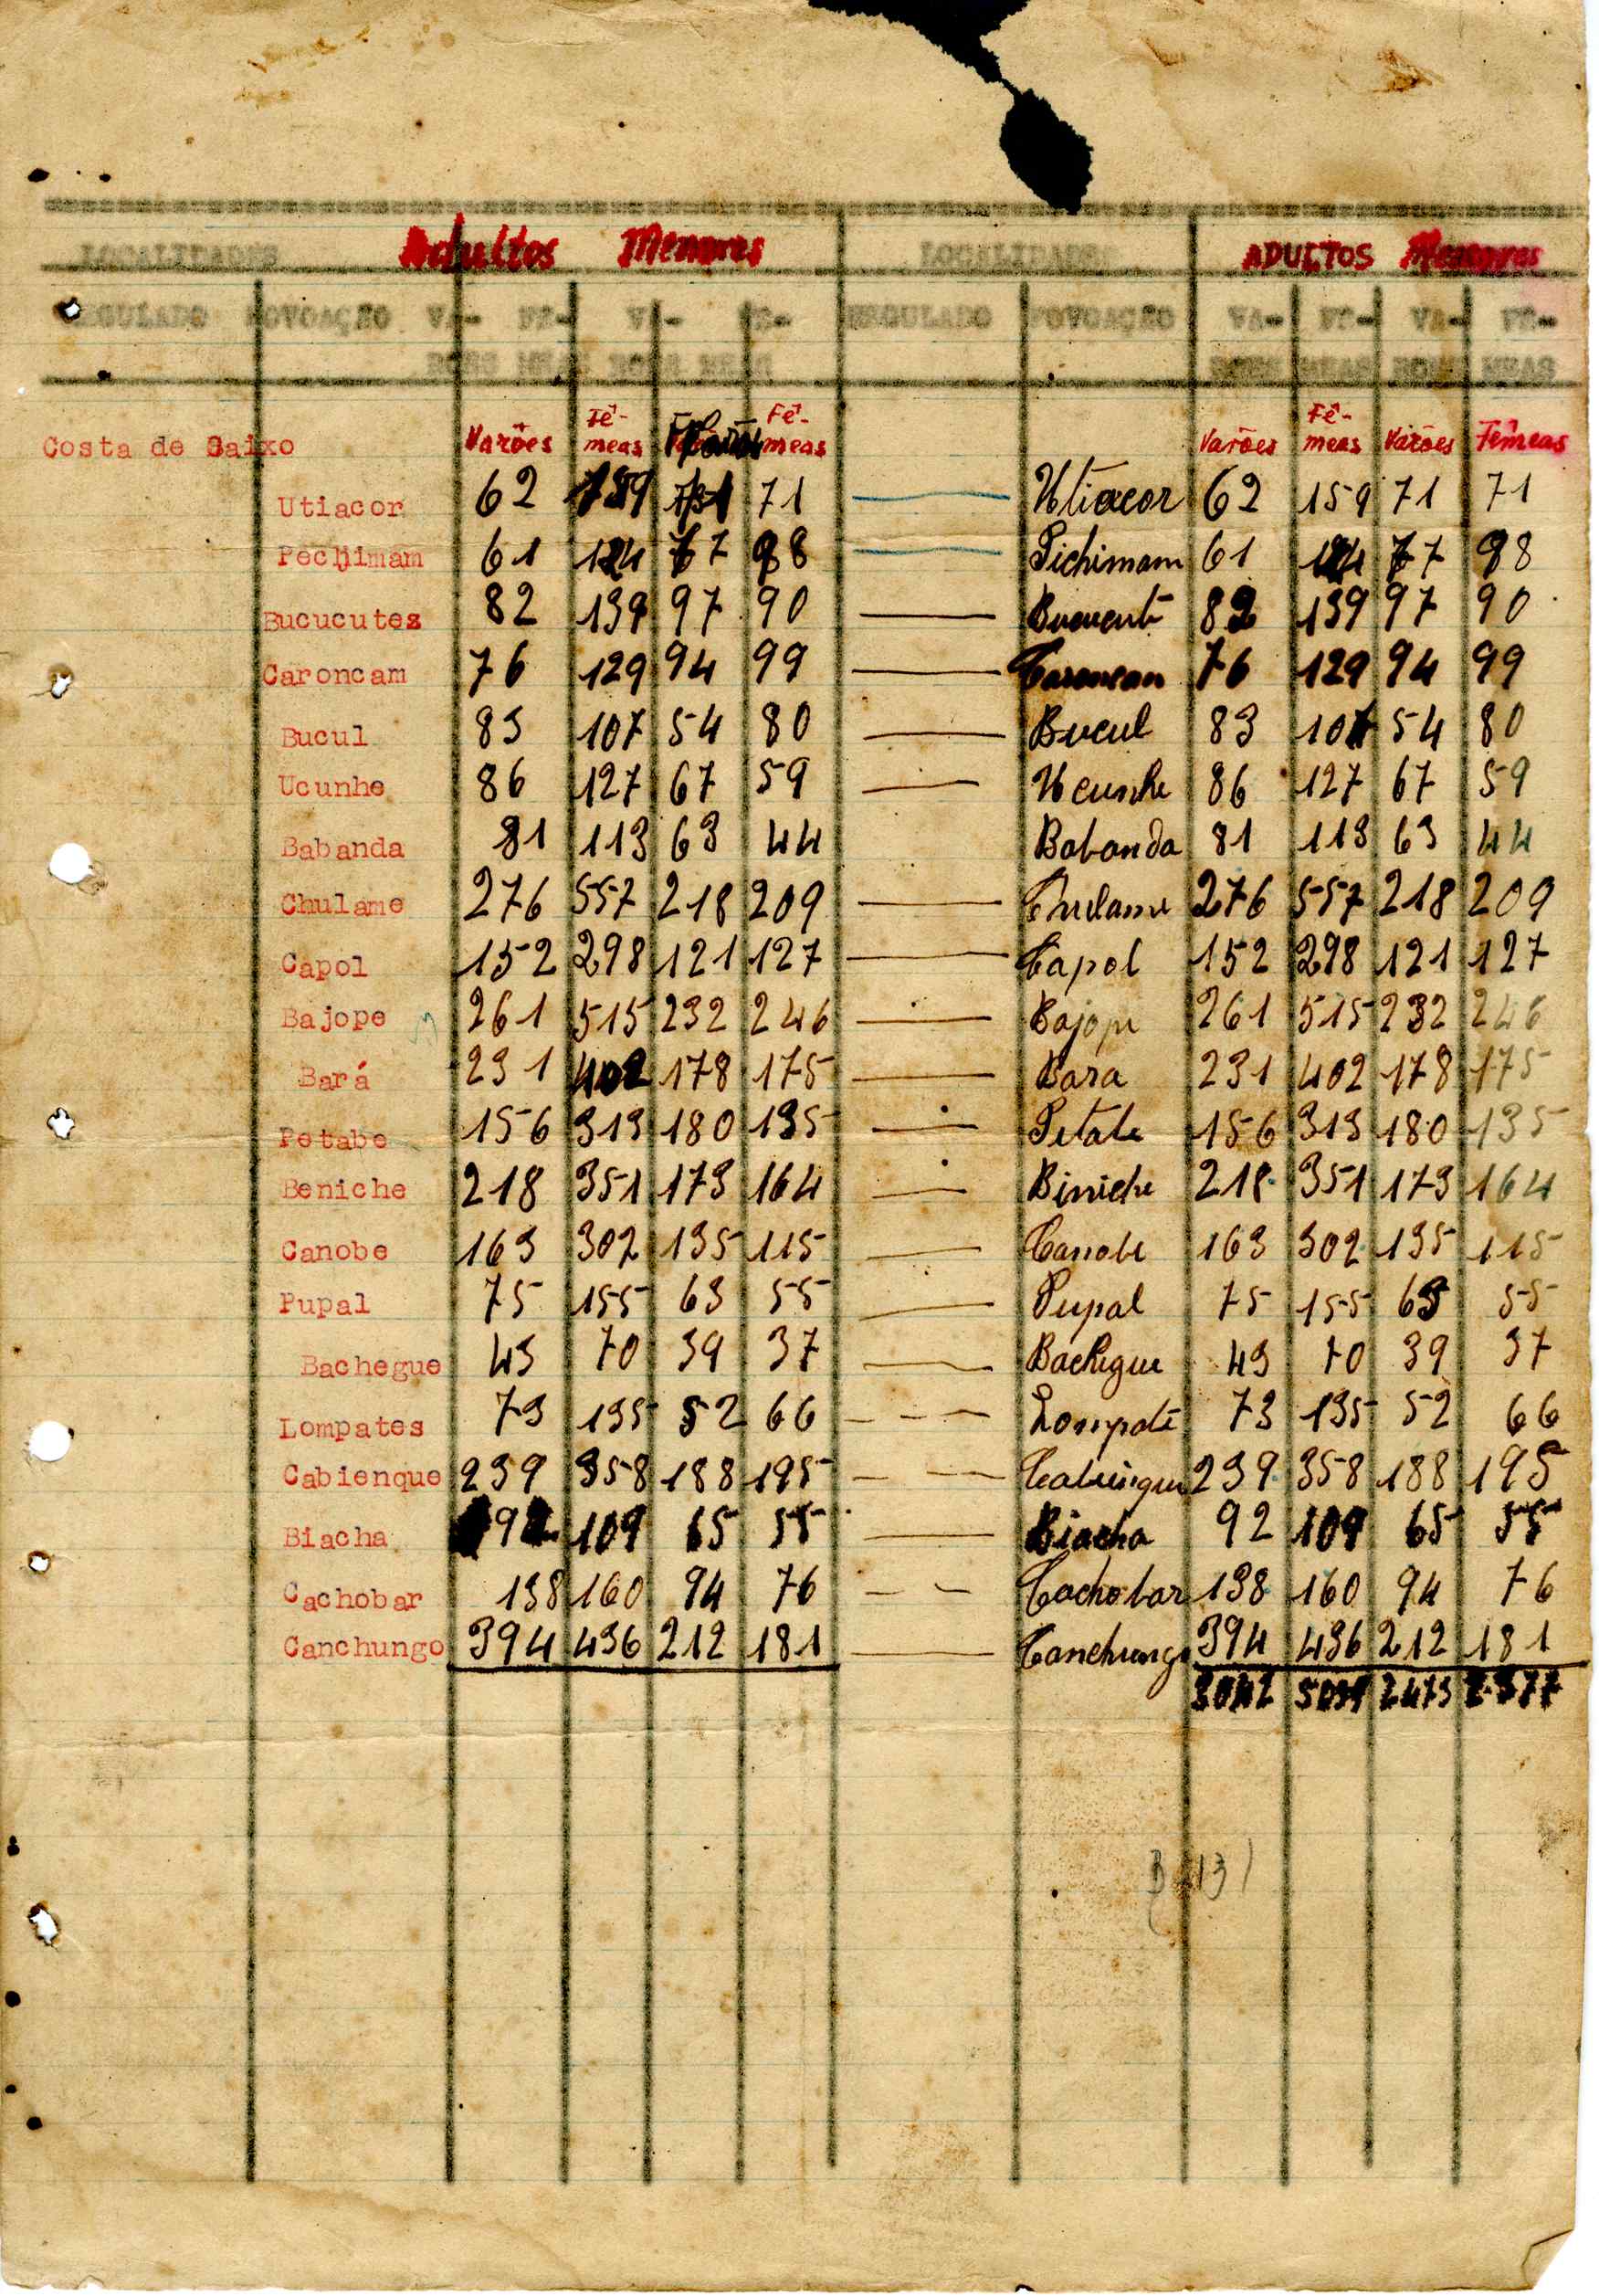 LOCALIDADES Adultos Menores LOCALIDADES ADULTOS Menores
REGULADO POVOAÇÃO VA- FE- VA- FE- REGULADO POVOAÇÃO VA- FE- VA- FE-
ROES MEAS ROES MEAS ROES MEAS ROES MEAS
Costa de Baixo Varões Fê-meas Varões Fê-meas Varões Fê-meas Varões Fêmeas
Utiacor 62 159 71 71 Utiacor 62 159 71 71
Pechimam 61 124 77 98 Pichimam 61 124 77 98
Bucucutes 82 139 97 90 Bucucute 82 139 97 90
Caroncam 76 129 94 99 Caroncam 76 129 94 99
Bucul 83 107 54 80 Bucul 83 107 54 80
Ucunhe 86 127 67 59 Ucunhe 86 127 67 59
Babanda 81 113 63 44 Babanda 81 113 63 44
Chulame 276 557 218 209 Chulame 276 557 218 209
Capol 152 298 121 127 Capol 152 298 121 127
Bajope 261 515 232 246 Bajope 261 515 232 246
Bará 231 402 178 175 Bara 231 402 178 175
Petabe 156 313 180 135 Petabe 156 313 180 135
Beniche 218 351 173 164 Biniche 218 351 173 164
Canobe 163 302 135 115 Canobe 163 302 135 115
Pupal 75 155 63 55 Pupal 75 155 63 55
Bachegue 43 70 39 37 Bachegue 43 70 39 37
Lompates 73 135 52 66 Lompate 73 135 52 66
Cabienque 239 358 188 195 Cabienque 239 358 188 195
Biacha 92 109 65 55 Biacha 92 109 65 55
Cachobar 138 160 94 76 Cachobar 138 160 94 76
Canchungo 394 436 212 181 Canchungo 394 436 212 181
3042 2473